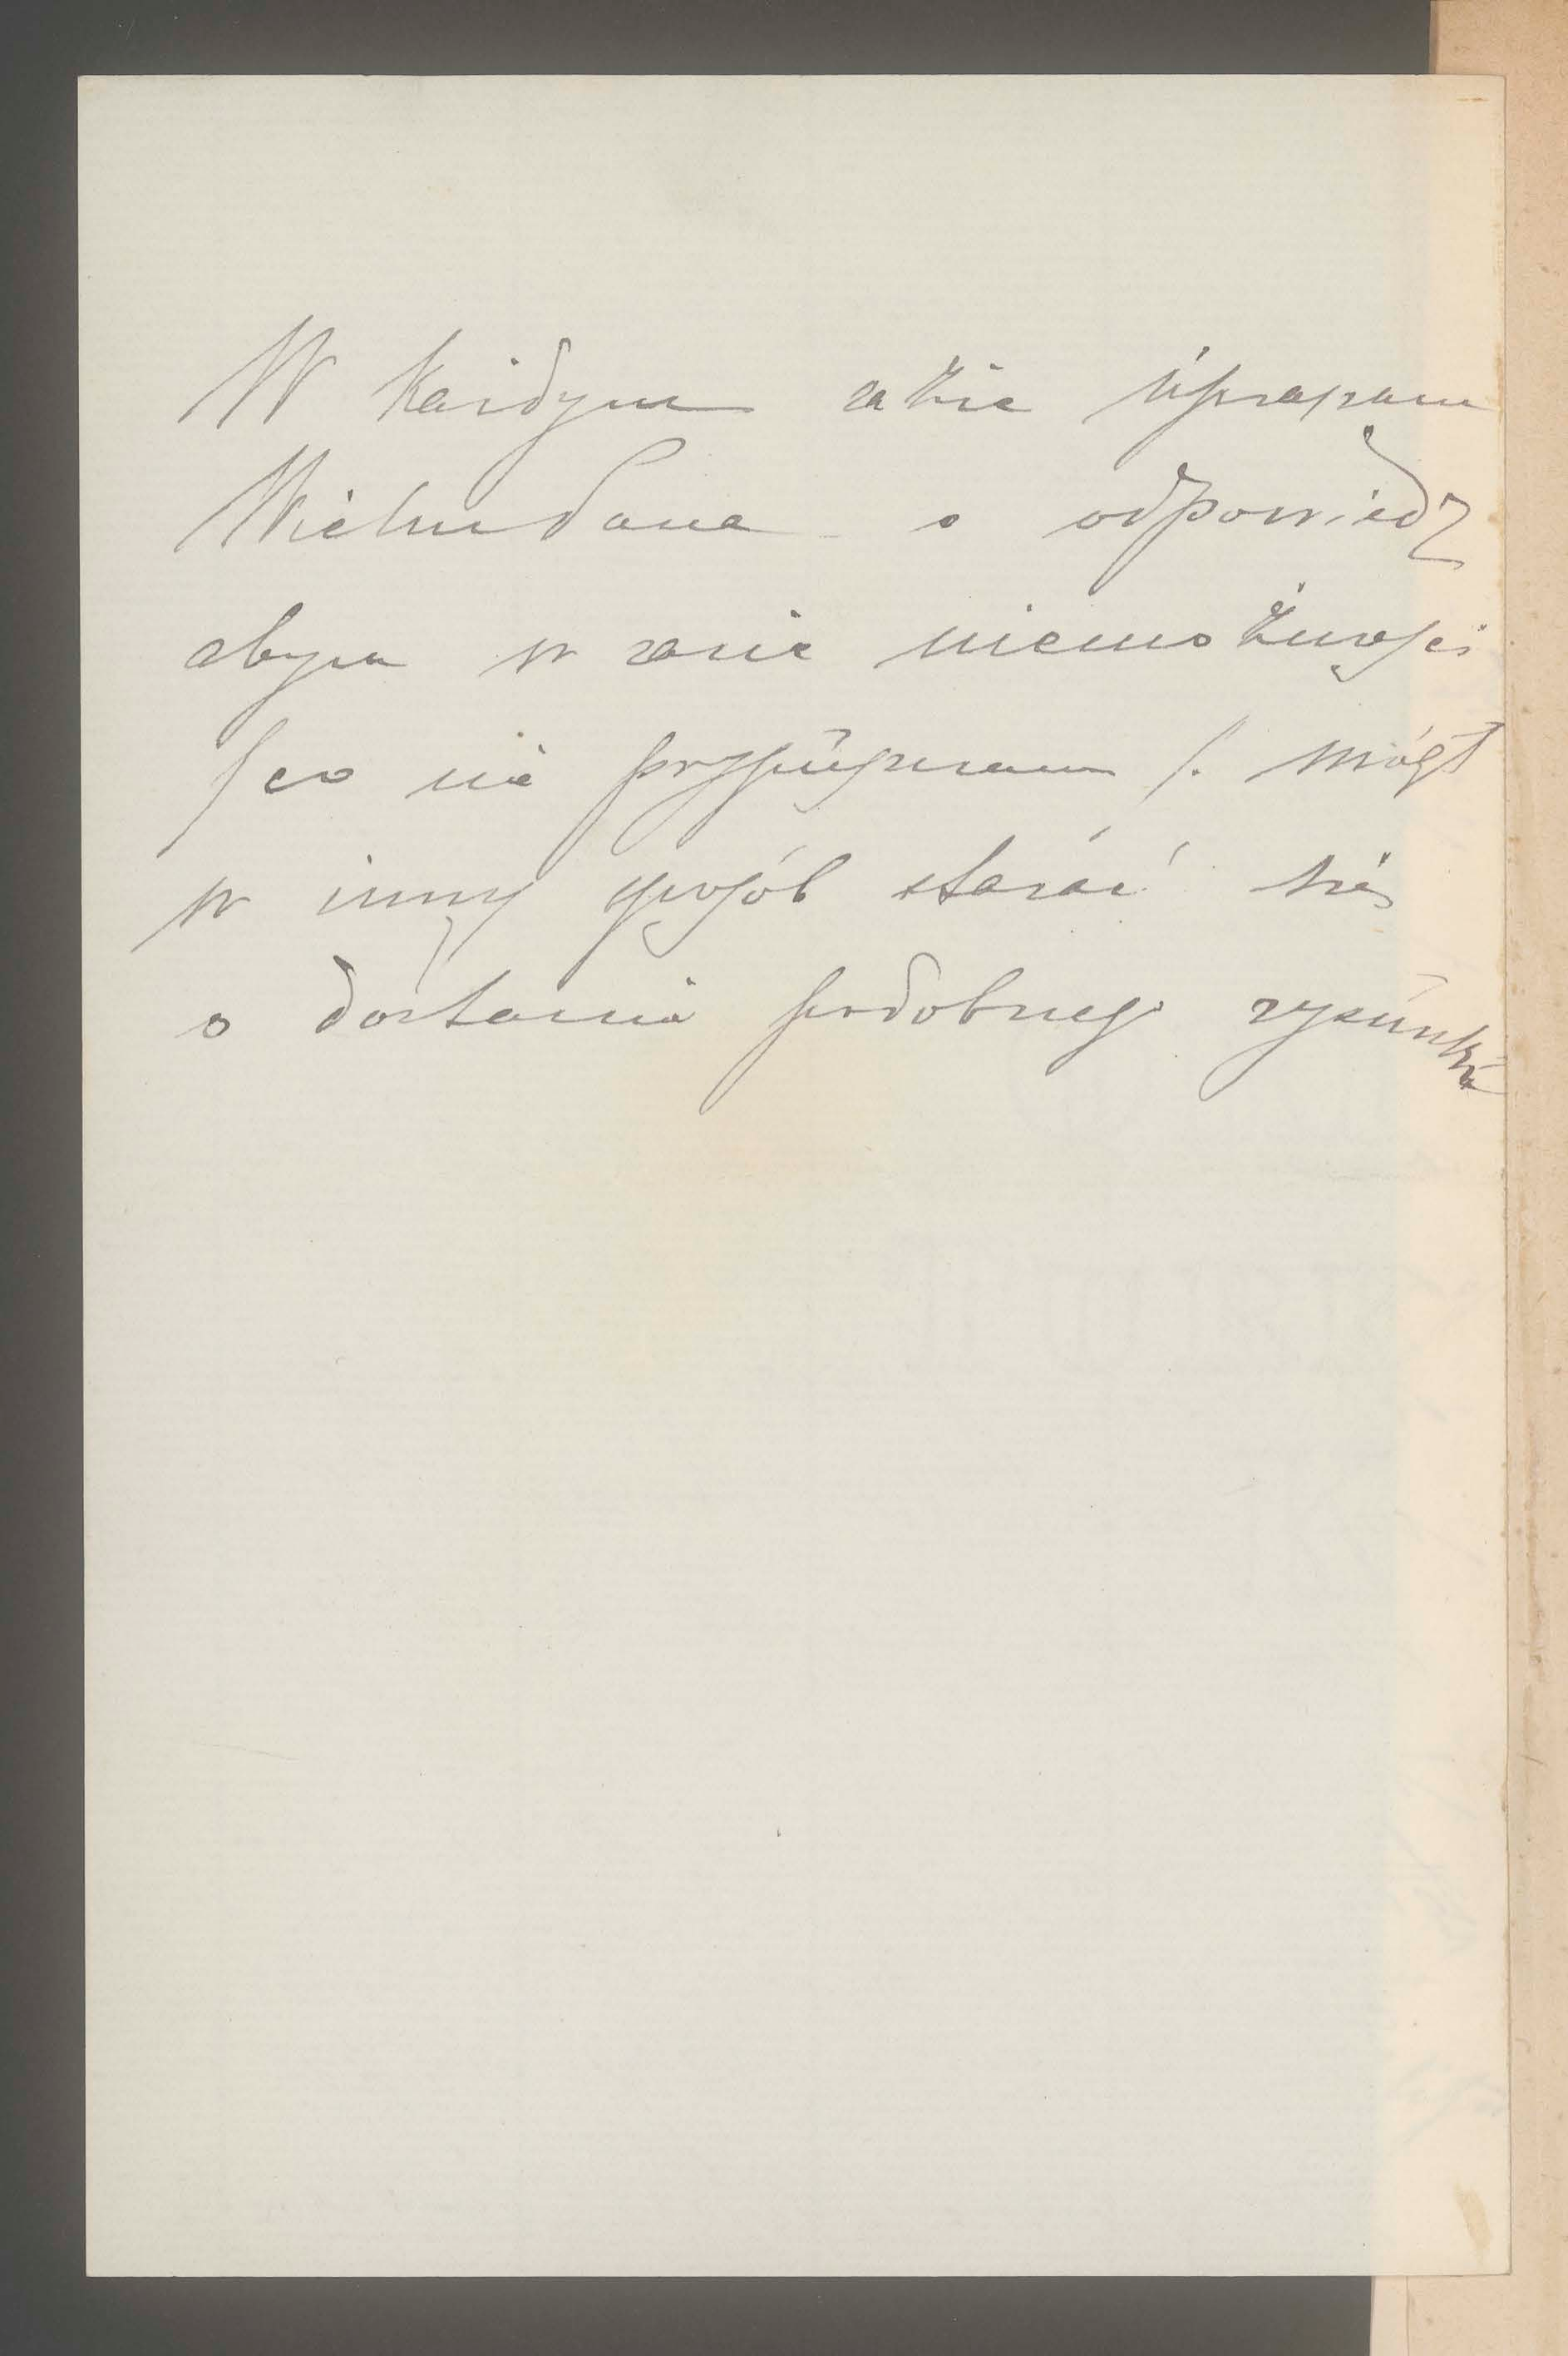 W każdym razie upraszam
Wielm Pana o odpowiedź
abym w razie niemożności
/co nie przypuszczam/. mógł
w inny sposób starać się
o dostanie podobnego rysunku